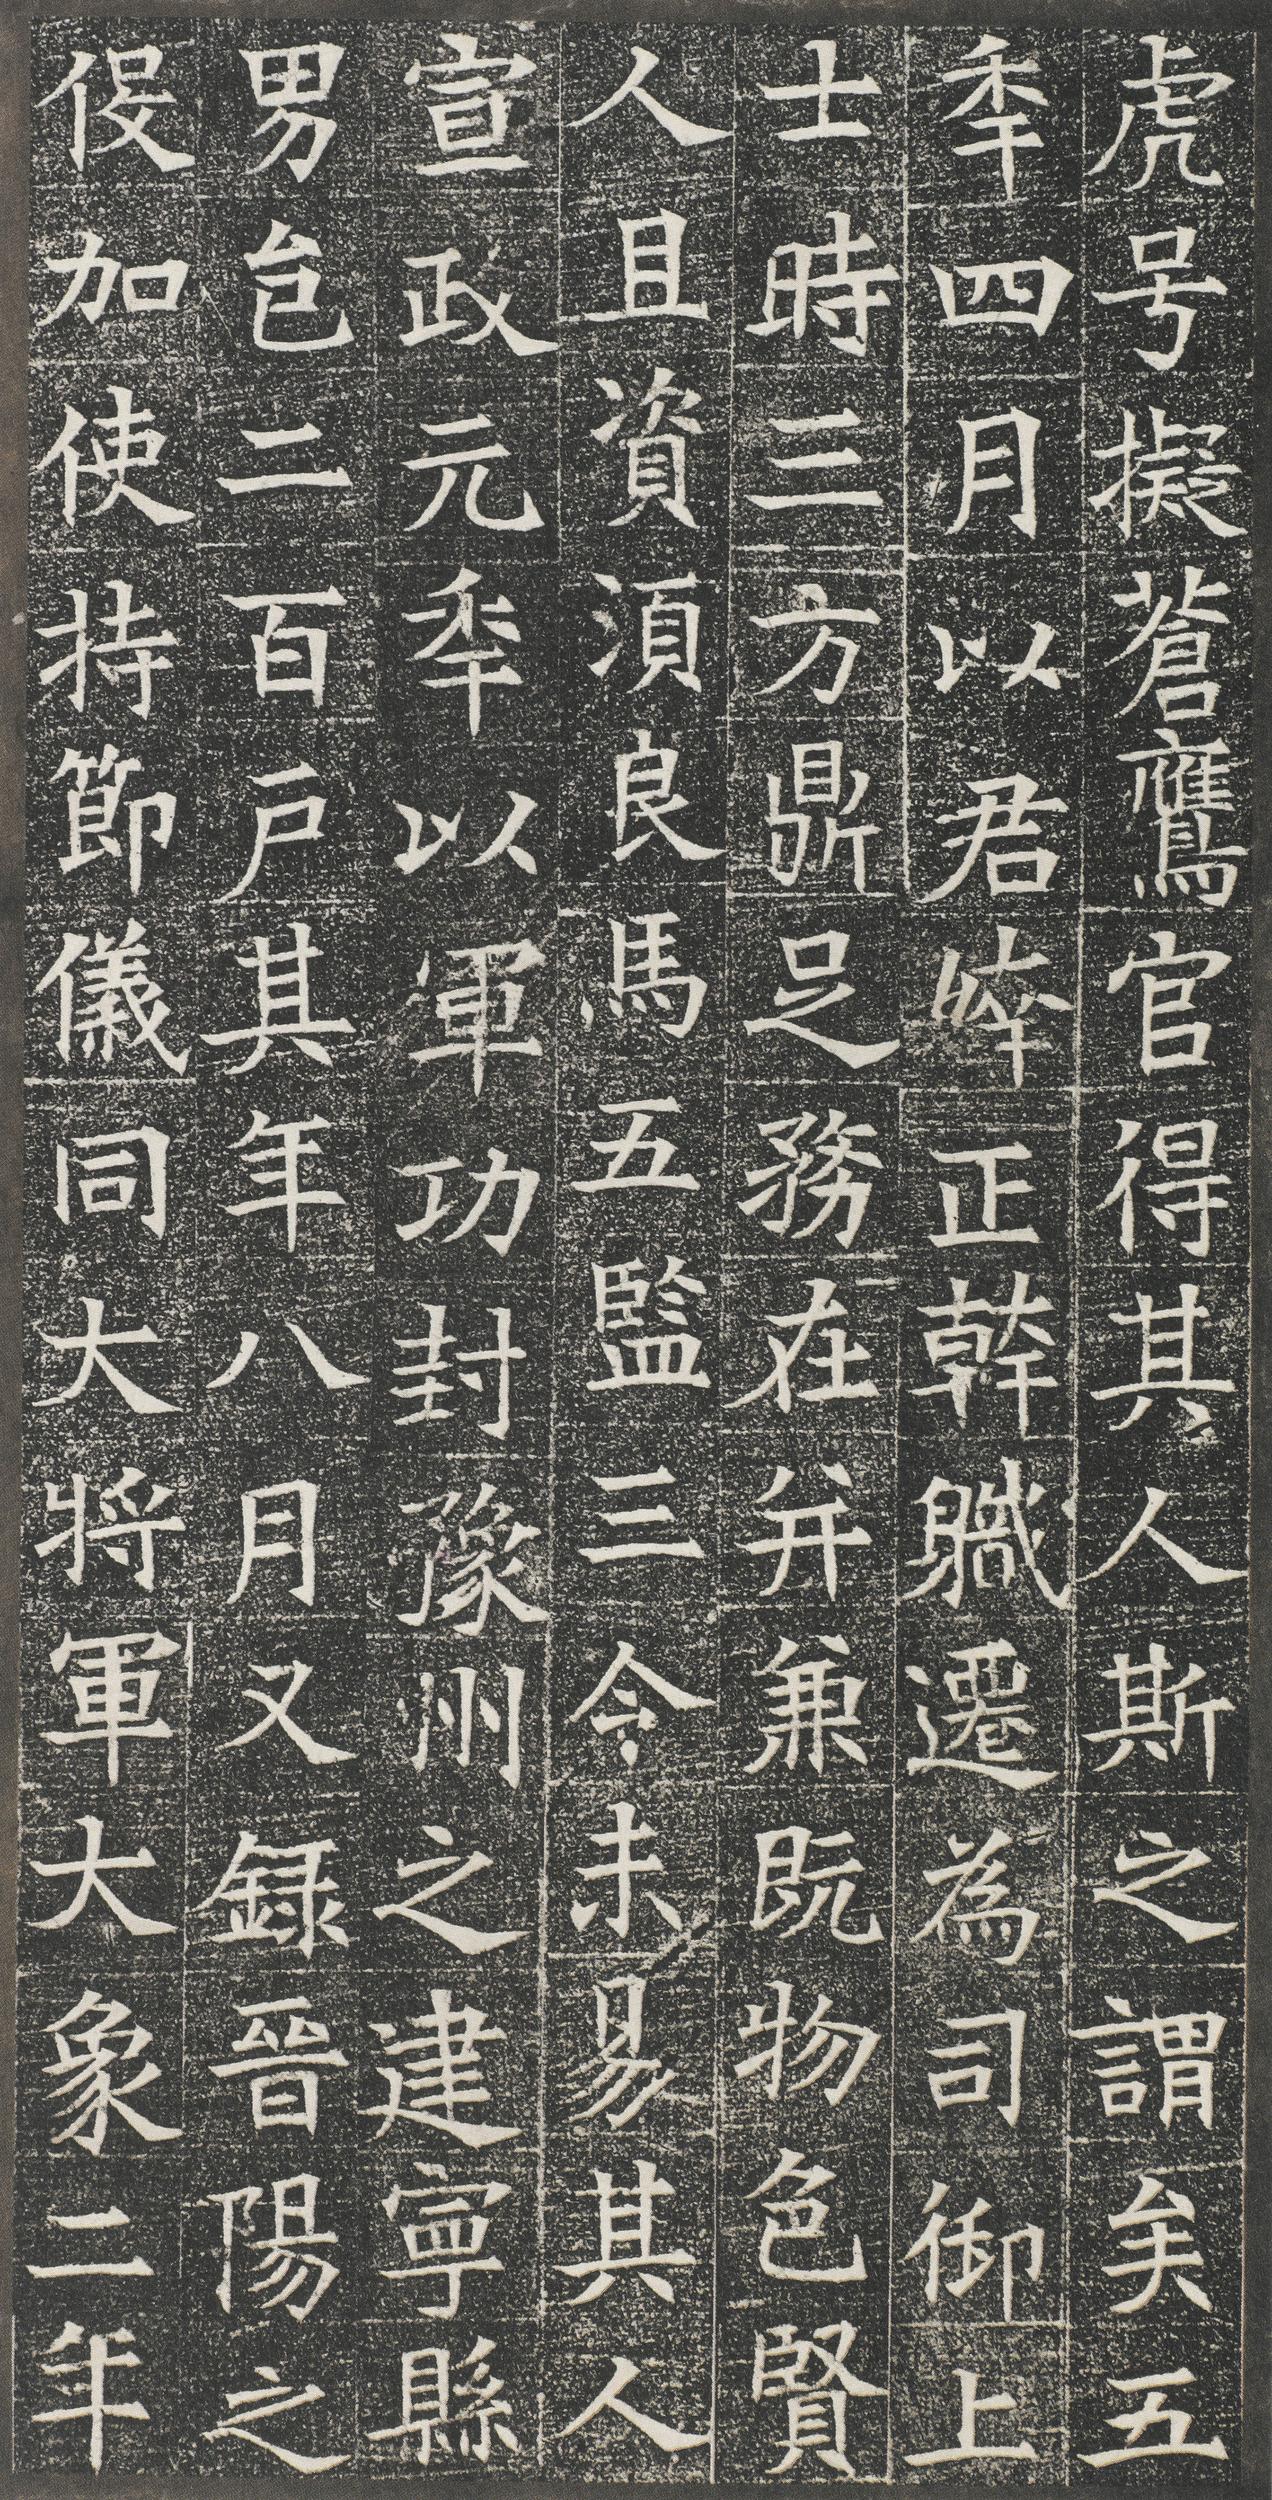 虎号擬蒼鷹官得其人斯之謂矣五
秊四月以君啐正幹職遷為司御上
士時三方鼎足務在并兼既物色賢
人且資須良馬五監三令未易其人
宣政元秊以軍功封豫州之建寧縣
男邑二百戶其年八月又録晉陽之
役加使持節儀同大将軍大象二年